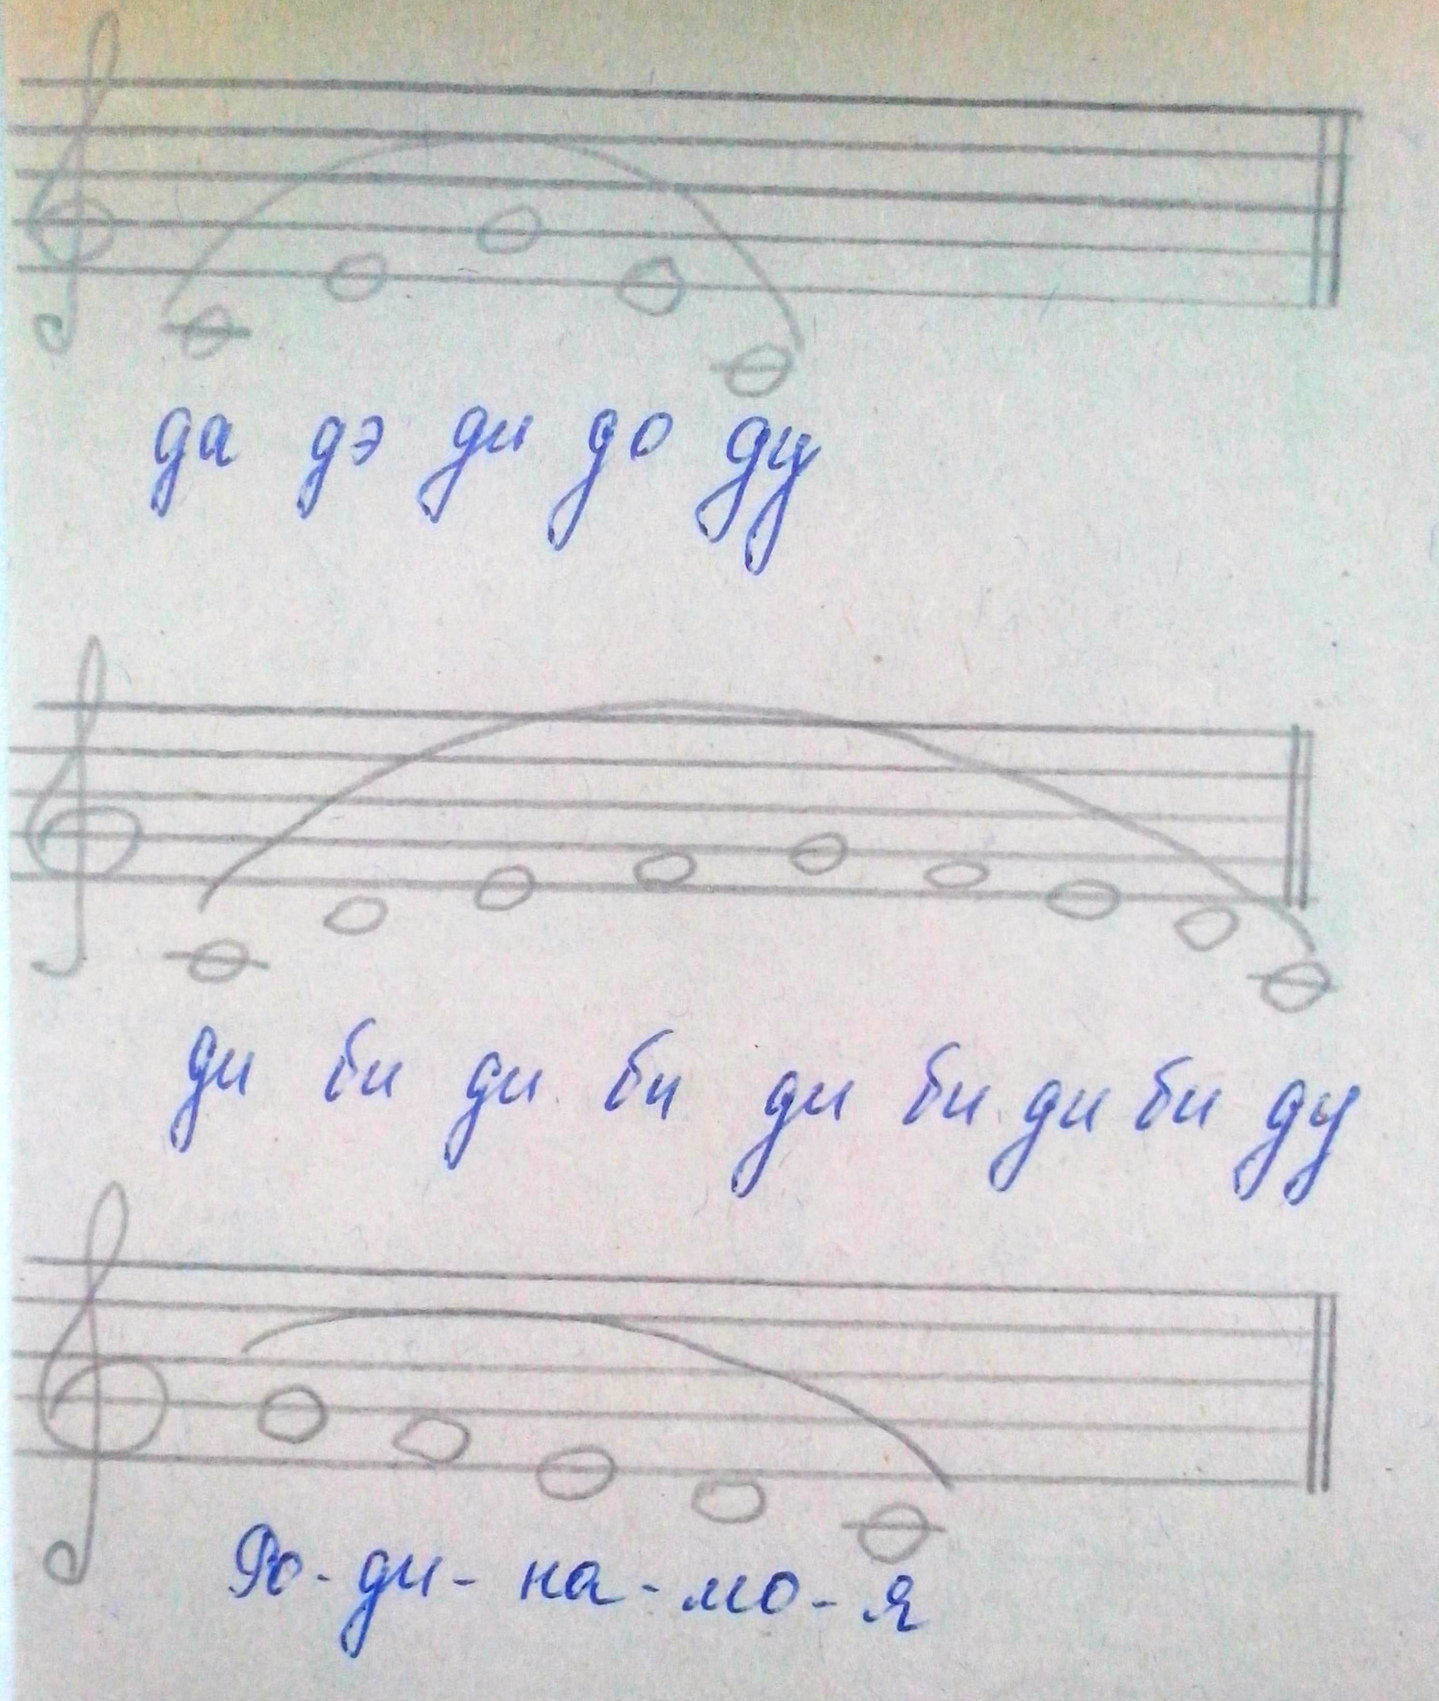 да дэ ди до ду
ди би ди би ди би ди би ду
Ро-ди-на-мо-я